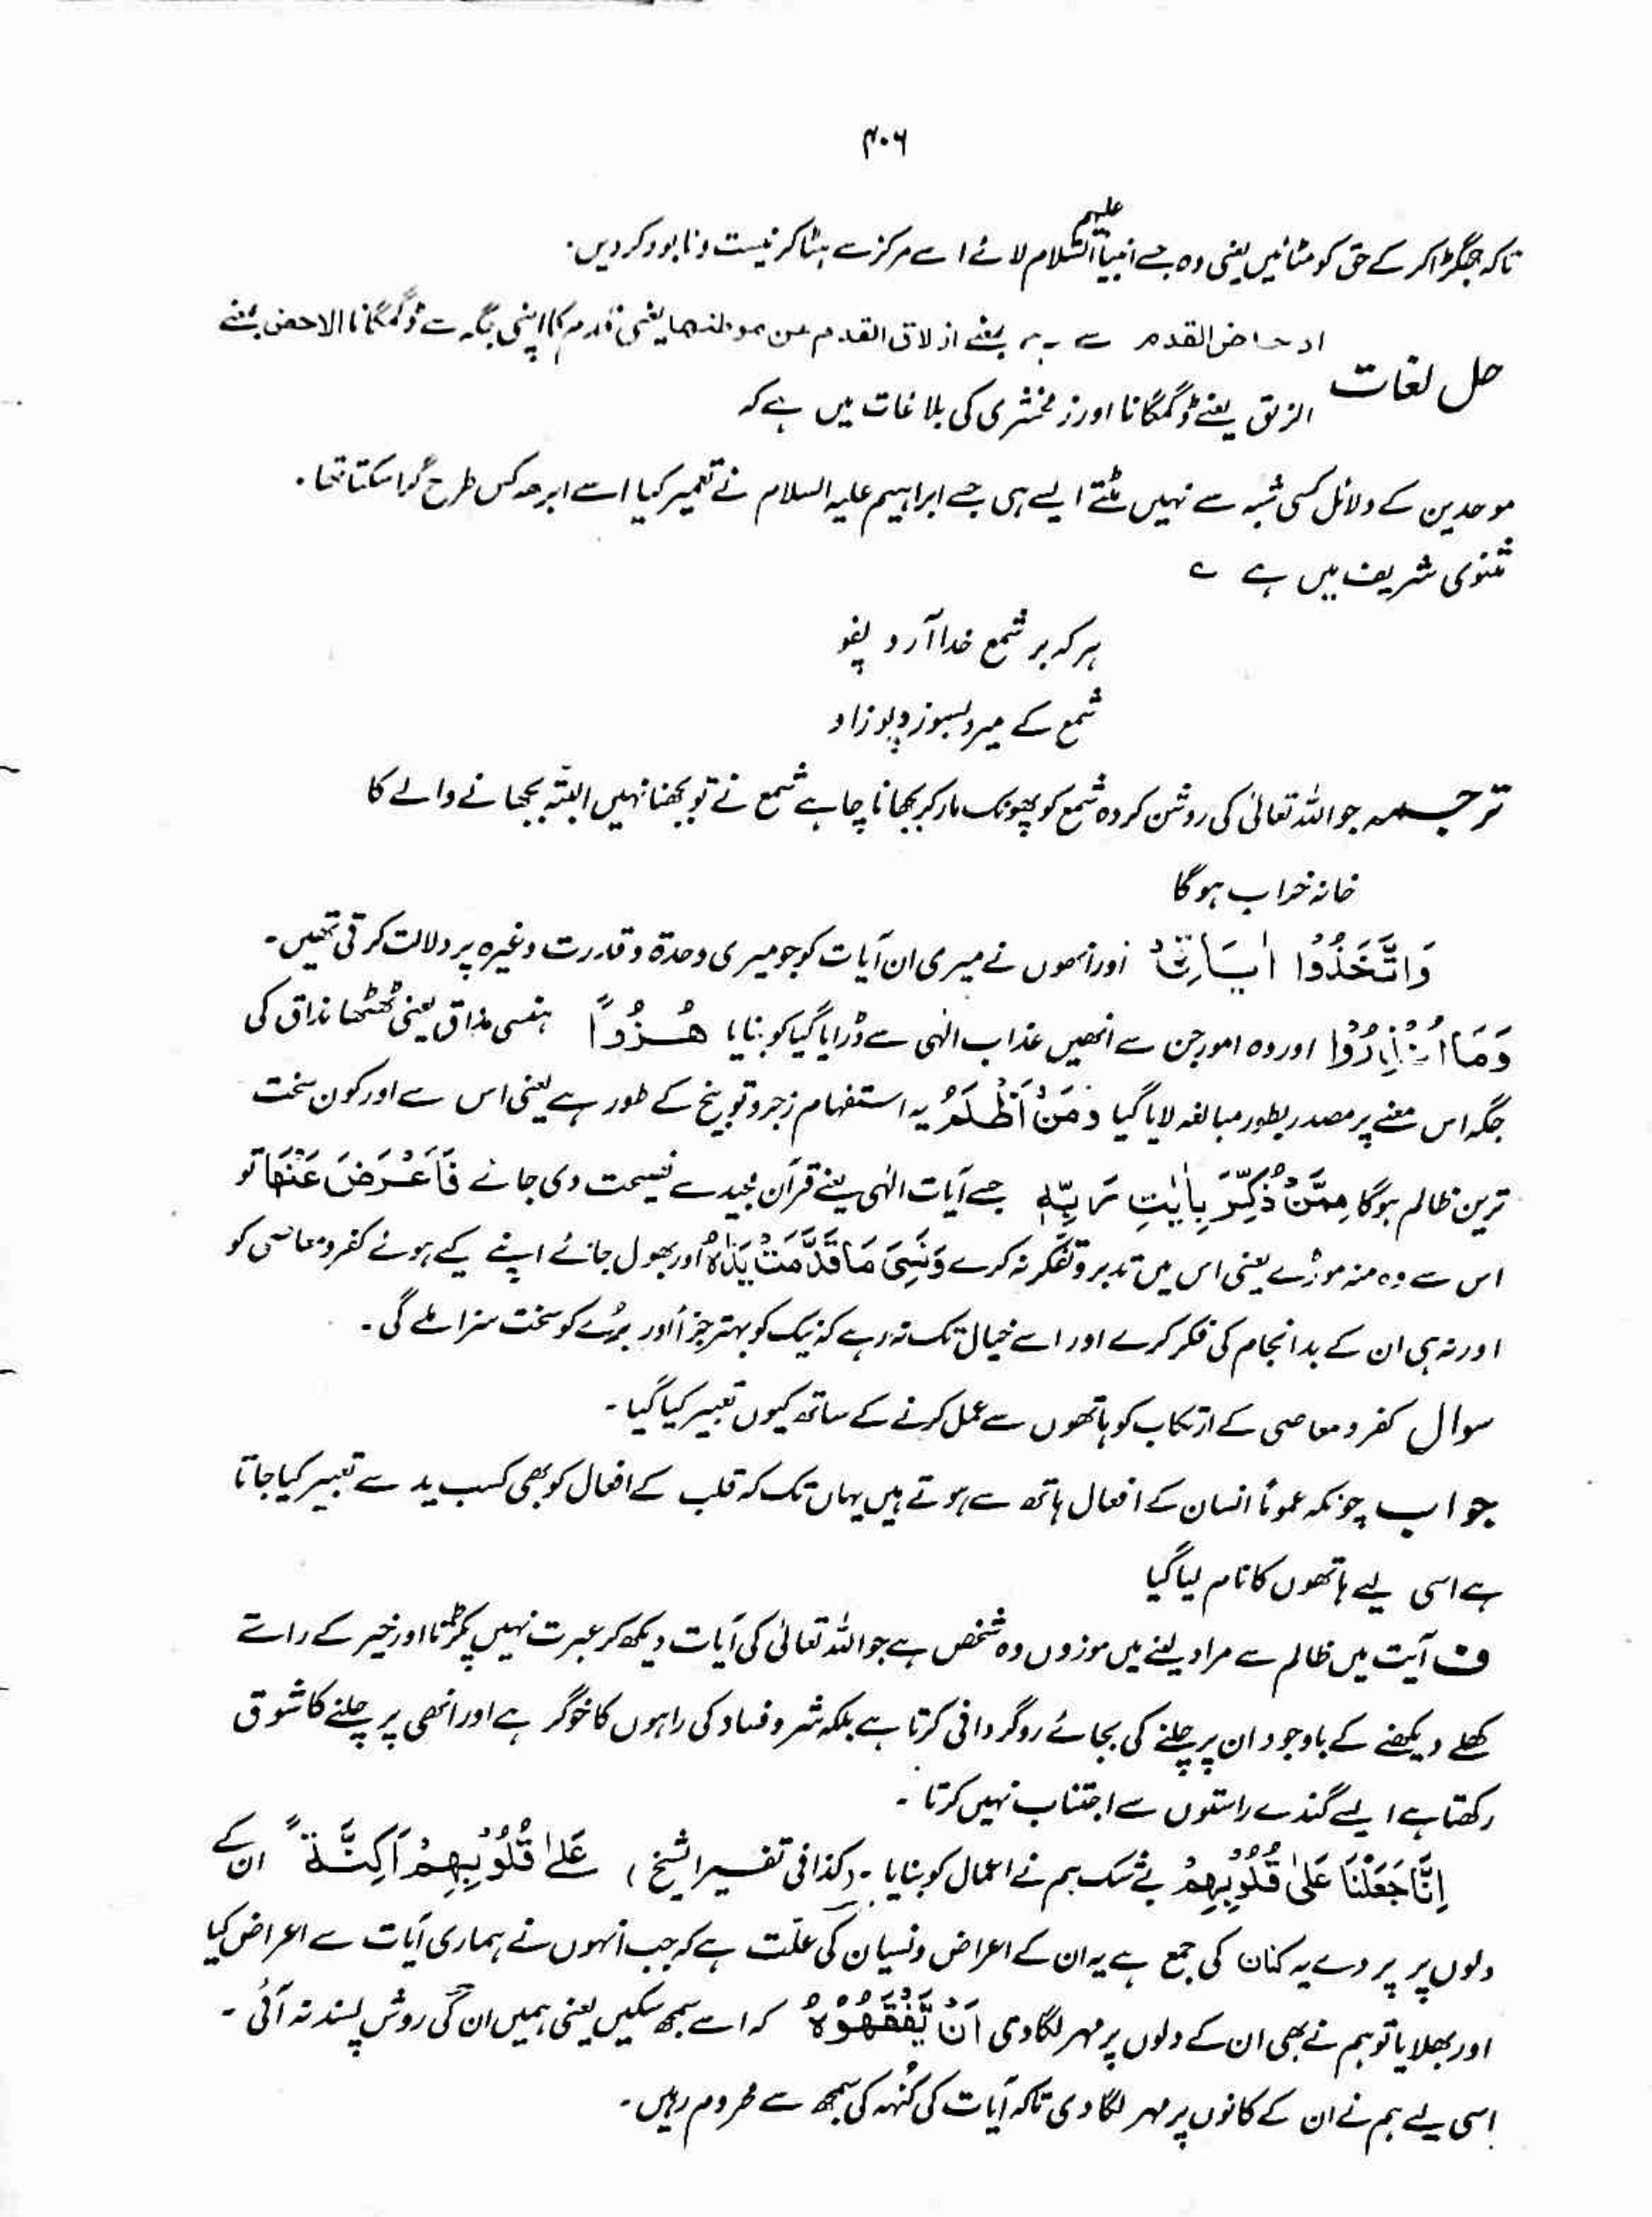 ۴۰۶
تاکہ جھگڑا کر کے حق کو مٹائیں یعنی وہ جسے انبیاء علیہم السلام لائے اسے مرکز سے ہٹا کر نیست و نابود کر دیں۔
ادحاض القدم سے ہے بمعنے ازلاق القدم عن موطنہا یعنی قدم کا اپنی جگہ سے ڈگمگانا الادحض بمعنے
حل لغات
الزلق یعنے ڈگمگانا اور زمخشری کی بلاغات میں ہے کہ
موحدین کے دلائل کسی شبہ سے نہیں مٹتے ایسے ہی جسے ابراہیم علیہ السلام نے تعمیر کیا اسے ابرھہ کس طرح گرا سکتا تھا۔
مثنوی شریف میں ہے ؎
ہر کہ بر شمع خدا آرد پفو
شمع کے میرد بسوزد پوز او
ترجمہ جو اللہ تعالیٰ کی روشن کردہ شمع کو پھونک مار کر بجھانا چاہے شمع نے تو بجھنا نہیں البتہ بجھانے والے کا
خانہ خراب ہوگا
وَاتَّخَذُوا اٰیٰتِیْ اور انھوں نے میری ان آیات کو جو میری وحدۃ و قدرت وغیرہ پر دلالت کرتی تھیں۔
وَمَا اُنْذِرُوْا اور وہ امور جن سے انھیں عذاب الٰہی سے ڈرایا گیا کو بنایا ھُزُوًا ہنسی مذاق یعنی ٹھٹھا مذاق کی
جگہ اس معنے پر مصدر بطور مبالغہ لایا گیا وَمَنْ اَظْلَمُ یہ استفہام زجر و توبیخ کے طور ہے یعنی اس سے اور کون سخت
ترین ظالم ہوگا مِمَّنْ ذُکِّرَ بِاٰیٰتِ رَبِّہٖ جسے آیات الٰہی یعنے قرآن مجید سے نصیحت دی جائے فَاَعْرَضَ عَنْھَا تو
اس سے وہ منہ موڑے یعنی اس میں تدبر و تفکر نہ کرے وَنَسِیَ مَا قَدَّمَتْ یَدٰہُ اور بھول جائے اپنے کیے ہوئے کفر و معاصی کو
اور نہ ہی ان کے بد انجام کی فکر کرے اور اسے خیال تک نہ رہے کہ نیک کو بہتر جزأ اور بُرے کو سخت سزا ملے گی۔
سوال کفر و معاصی کے ارتکاب کو ہاتھوں سے عمل کرنے کے ساتھ کیوں تعبیر کیا گیا۔
جواب چونکہ عموماً انسان کے افعال ہاتھ سے ہوتے ہیں یہاں تک کہ قلب کے افعال کو بھی کسب ید سے تعبیر کیا جاتا
ہے اسی لیے ہاتھوں کا نام لیا گیا
ف آیت میں ظالم سے مراد لینے میں موزوں وہ شخص ہے جو اللہ تعالیٰ کی آیات دیکھ کر عبرت نہیں پکڑتا اور خیر کے راستے
کھلے دیکھنے کے باوجود ان پر چلنے کی بجائے روگردانی کرتا ہے بلکہ شر و فساد کی راہوں کا خوگر ہے اور انھی پر چلنے کا شوق
رکھتا ہے ایسے گندے راستوں سے اجتناب نہیں کرتا۔
اِنَّا جَعَلْنَا عَلیٰ قُلُوْبِہِمْ بے شک ہم نے اعمال کو بنایا۔ (کذا فی تفسیر الشیخ) عَلیٰ قُلُوْبِہِمْ اَکِنَّۃً ان کے
دلوں پر پردے یہ کنان کی جمع ہے یہ ان کے اعراض و نسیان کی علّت ہے کہ جب انہوں نے ہماری آیات سے اعراض کیا
اور بھلایا تو ہم نے بھی ان کے دلوں پر مہر لگا دی اَنْ یَّفْقَھُوْہُ کہ اسے سمجھ سکیں یعنی ہمیں ان کی روش پسند نہ آئی۔
اسی لیے ہم نے ان کے کانوں پر مہر لگا دی تاکہ آیات کی کُنہہ کی سمجھ سے محروم رہیں۔